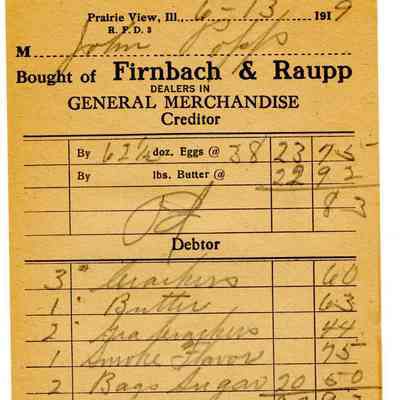 Prairie View, Ill., 6-13 1919
R. F. D. 3
M John Popp
Bought of Firnbach & Raupp
DEALERS IN
GENERAL MERCHANDISE
Creditor
By 62½ doz. Eggs @ 38 23 75
By lbs. Butter @ 22 92
83
Debtor
3 " Crackers 60
1 " Butter 63
2 " Gra Crackers 44
1 Smoke Flavor 75
2 Bags Sugar 20 50